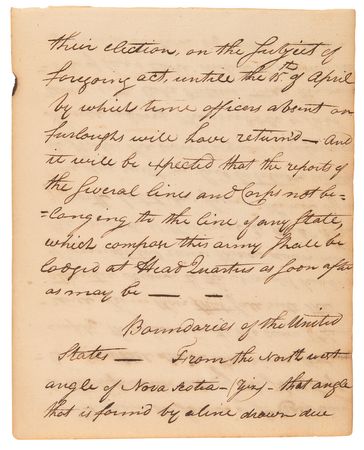 their election, on the Subject of
foregoing act, untile the 15th of April
by which time officers absent on
furloughs will have returnd — And
it will be expected that the reports of
the Several lines and Corps not be-
=longing to the line of any State,
which compose this army Shall be
lodged at Head Quarters as Soon after
as may be — —
Boundaries of the United
States — From the North west
angle of Nova Scotia — (Viz) — that angle
that is found by a line drawn due